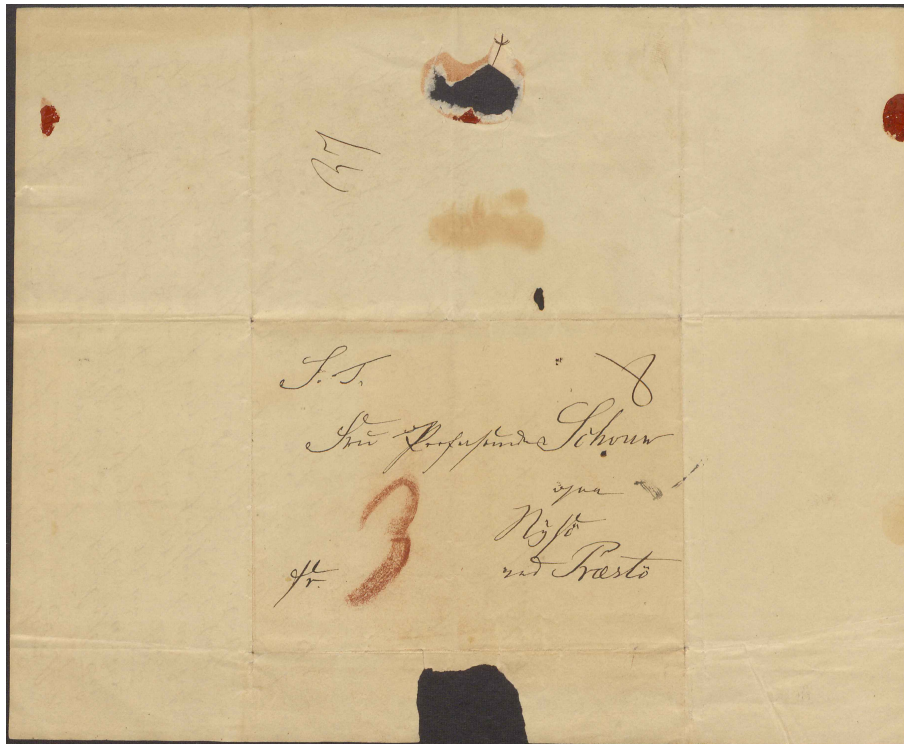 37
S. T. 8
Fru Professorinde Schouw
paa
Nysö
3
fr. ved Præstö